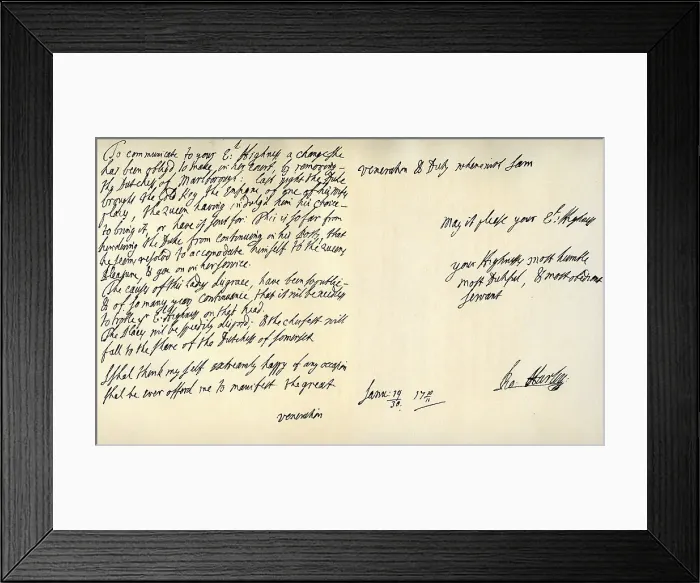 To communicate to your E:ll Highness a change she
has been oblig'd to make in her Court, by removing
the Dutchess of Marlborough: last night the Duke
brought the Gold Key the Ensigne of one of his Wifes
places, the Queen having indulg'd him his choice
to bring it, or have it sent for. This is so far from
hindering the Duke from continuing in his Posts, that
he seems resolv'd to accomodate himself to the Queens
pleasure, & goe on in her service.
The causes of this Ladys disgrace, have been so public
& of so many years continuance that it wil be needles
to trouble yr El Highness on that head.
The places wil be speedily dispos'd: & the cheifest will
fall to the share of the Dutchess of Somerset.
I shal think my self extreamly happy if any occasion
shal be ever offerd me to manifest the great
veneration
veneration & Duty wherewith I am
May it please your El: Highness
your Highness's most humble
most Dutiful, & most obedient
servant
Ro: Harley.
Janu: 19/30. 17 10/11